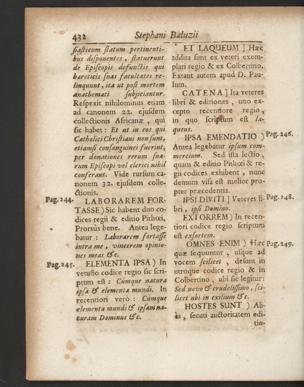 432 Stephani Baluzii
siasticum statum pertinenti-
bus disponentes, statuerunt
de Episcopis defunctis qui
haereticis suas facultates re-
linquunt, ita ut post mortem
anathemati subjiciantur.
Respexit nihilominus etiam
ad canonem 22. ejusdem
collectionis Africanae, qui
sic habet : Et ut in eos qui
Catholici Christiani non sunt,
etiamsi consanguinei fuerint,
per donationes rerum sua-
rum Episcopi vel clerici nihil
conferant. Vide rursum ca-
nonem 32. ejusdem colle-
ctionis.
Pag. 244. LABORAREM FOR-
TASSE) Sic habent duo co-
dices regii & editio Pithœi.
Prorsus bene. Antea lege-
batur : Laborarem fortasse
intra me, vincerem opinio-
nes meas &c.
Pag. 245. ELEMENTA IPSA) In
vetustio codice regio sic scri-
ptum est : Cumque natura
ipsa & elementa mundi. In
recentiori vero : Cumque
elementa mundi & ipsam na-
turam Dominus &c.
ET LAQUEUM) Haec
addita sunt ex veteri exem-
plari regio & ex Colbertino.
Extant autem apud D. Pau-
lum.
CATENA) Ita veteres
libri & editiones, uno ex-
cepto recentiore regio,
in quo scriptum est la-
queus.
IPSA EMENDATIO) Pag. 246.
Antea legebatur ipsum com-
mercium. Sed ista lectio,
quam & editio Pithœi & re-
gii codices exhibent, nunc
demum visa est melior pro-
pter praecedentia.
IPSI DIVITI) Veteres li- Pag. 248.
bri, ipsi Domino.
EXTORREM) In recen-
tiori codice regio scriptum
est exsortem.
OMNES ENIM) Haec Pag. 249.
quae sequuntur, usque ad
vocem scilicet, desunt in
utroque codice regio & in
Colbertino, ubi sic legitur:
Sed novo & crudelissimo, sci-
licet ubi in exilium &c.
HOSTES SUNT) Ali-
as, secuti auctoritatem edi-
tio-